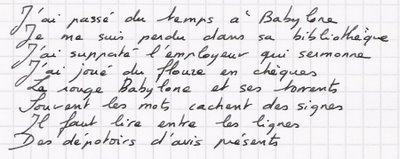 J'ai passé du temps à Babylone
Je me suis perdu dans sa bibliothèque
J'ai supporté l'employeur qui sermonne
J'ai joué du flouze en chèques
La rouge Babylone et ses torrents
Souvent les mots cachent des signes
Il faut lire entre les lignes
Des dépotoirs d'avis présents